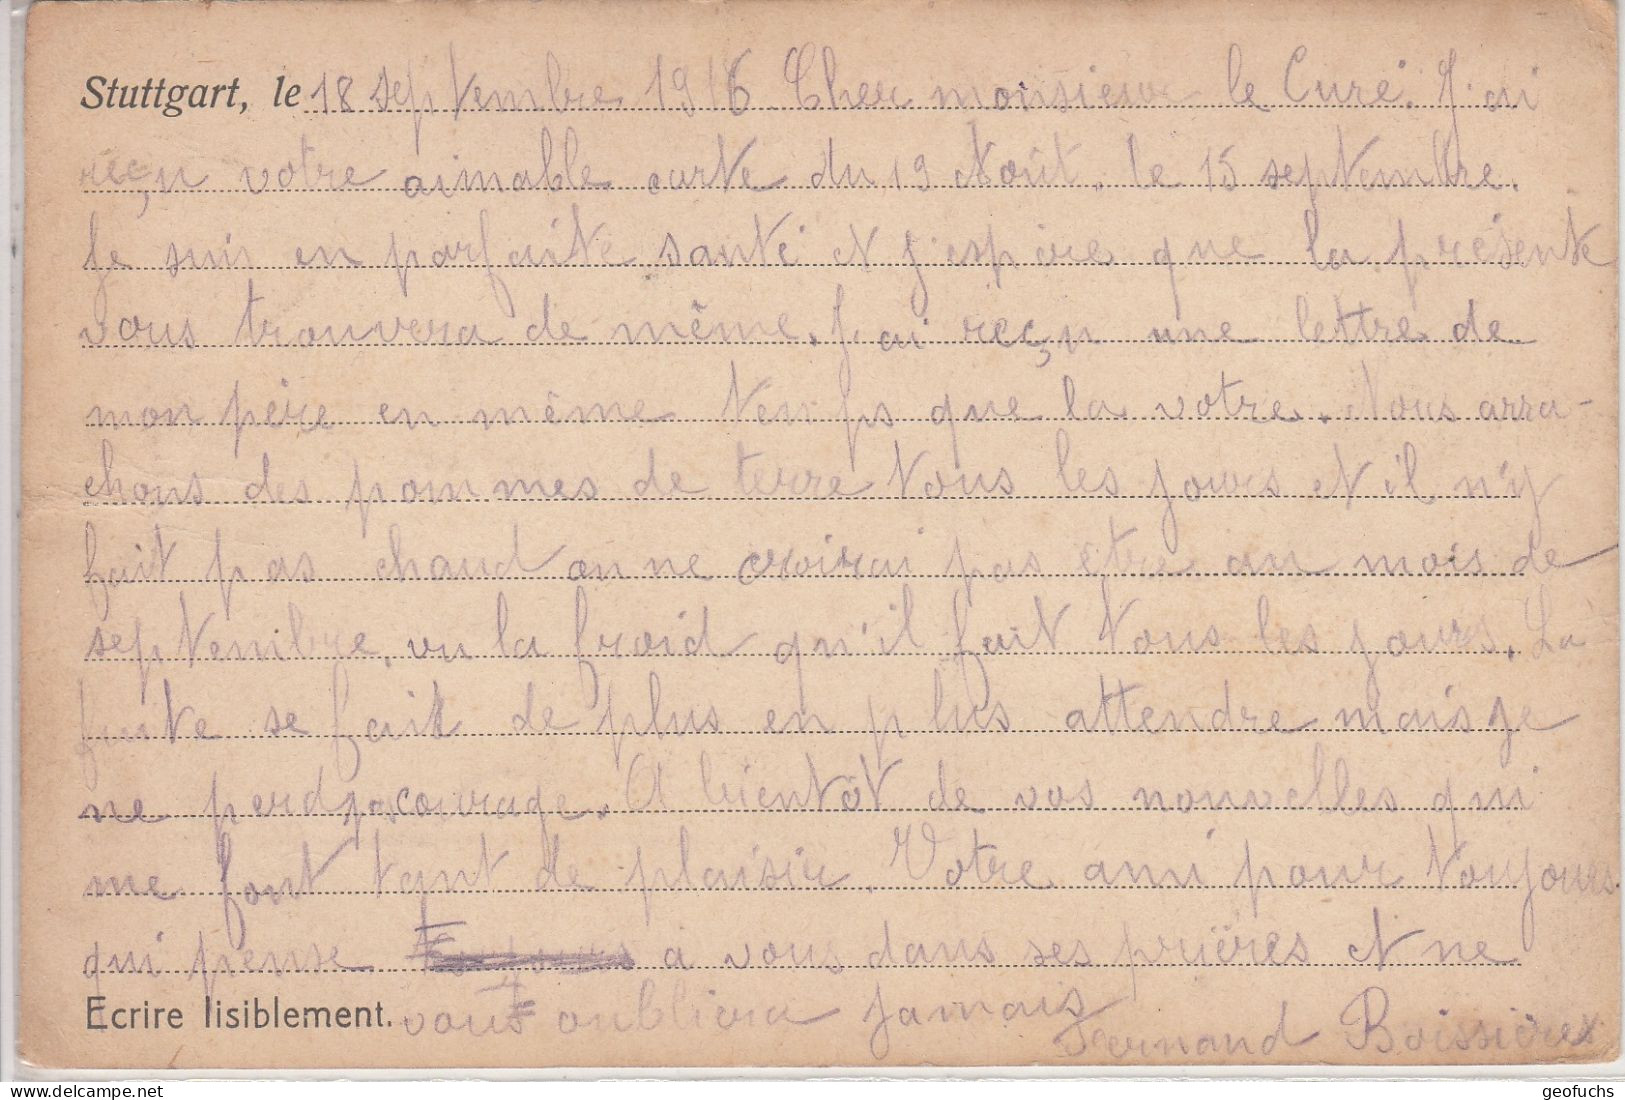 Stuttgart, le 18 septembre 1916. Cher monsieur le Curé. J'ai
reçu votre aimable carte du 19 Août. le 15 septembre.
Je suis en parfaite santé et j'espère que la présente
vous trouvera de même. J'ai reçu une lettre de
mon père en même temps que la votre. Nous arra-
chons des pommes de terre tous les jours et il n'y
fait pas chaud on ne croirai pas être au mois de
septembre, vu la froid qu'il fait tous les jours. La
fuite se fait de plus en plus attendre mais je
ne perd pas courage. A bientôt de vos nouvelles qui
me font tant de plaisir. Votre ami pour toujours
qui pense toujours a vous dans ses prières et ne
Ecrire lisiblement. vous oubliera jamais
Fernand Boissières
geofuchs